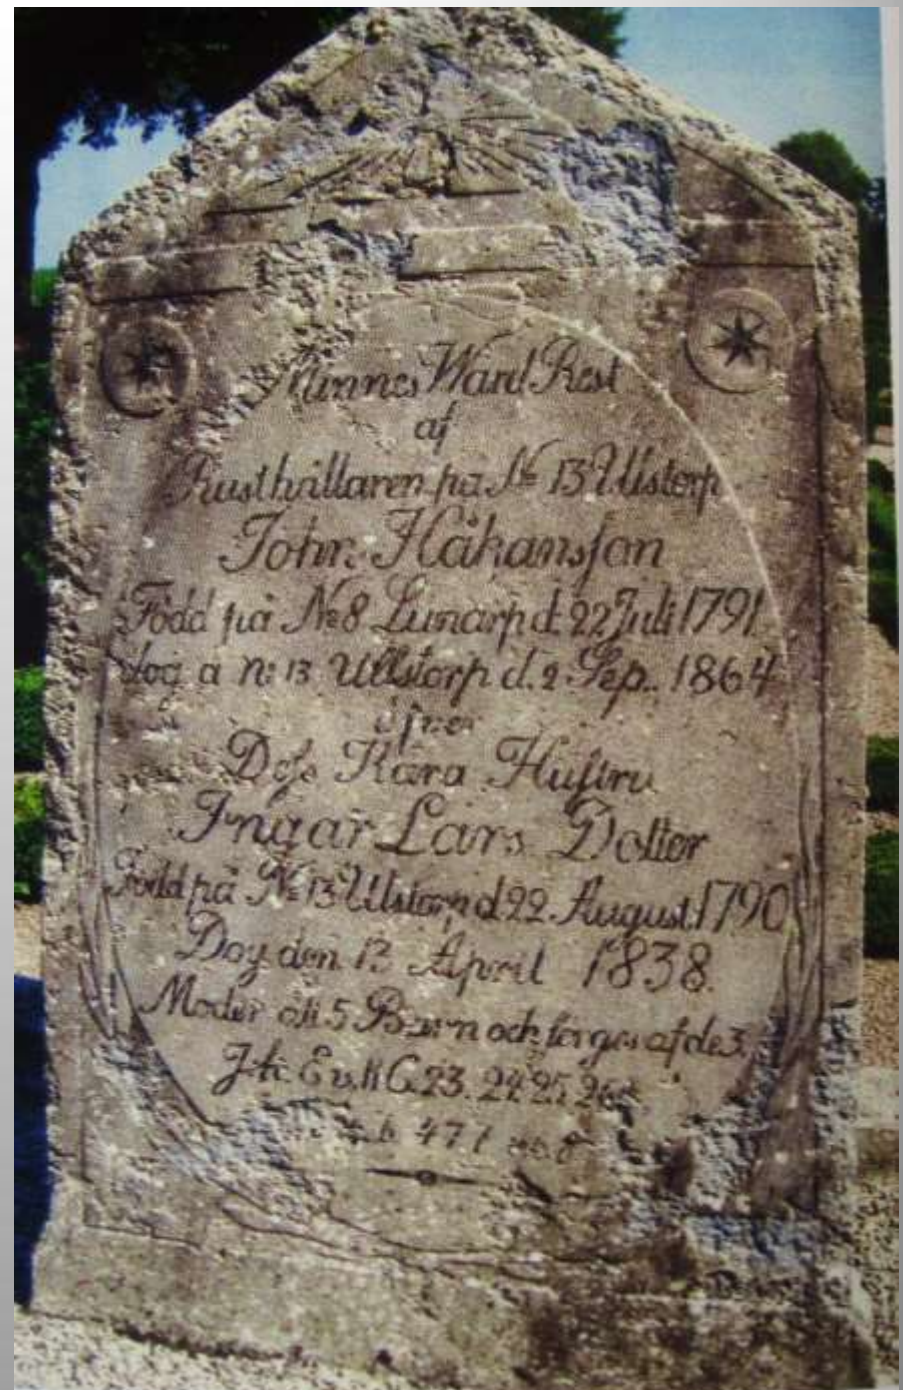 Minnes Ward Rest
af
Rusthållaren på No 13 Ulstorp
John Håkansson
Född på No 8 Lunarp d. 22 Juli 1791
dog a n: 13 Ullstorp d. 2 Sep. 1864
öfver
Dess Kära Hustru
Ingar Lars Dotter
Född på No 13 Ulstorp d 22 August 1790
Dog den 13 April 1838.
Moder till 5 Barn och sörges af de 3.
C. 23. 24. 25. 26
47